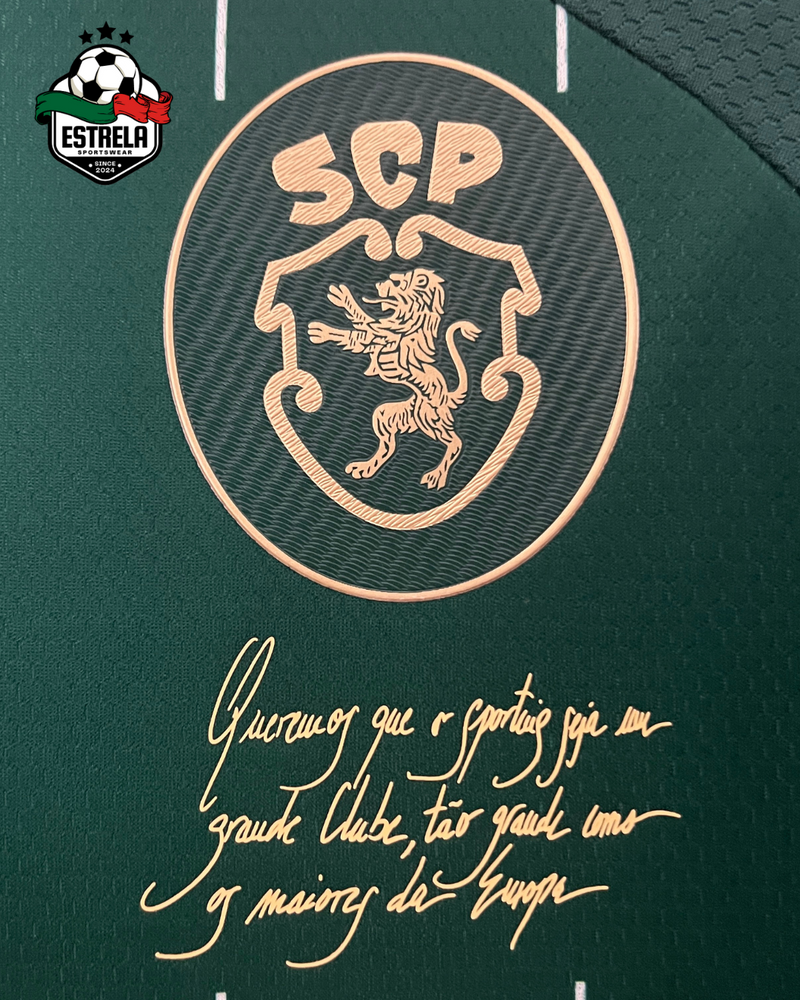 ESTRELA
SPORTSWEAR
SINCE
2024
SCP
Queremos que o sporting seja um
grande Clube, tão grande como
os maiores da Europa